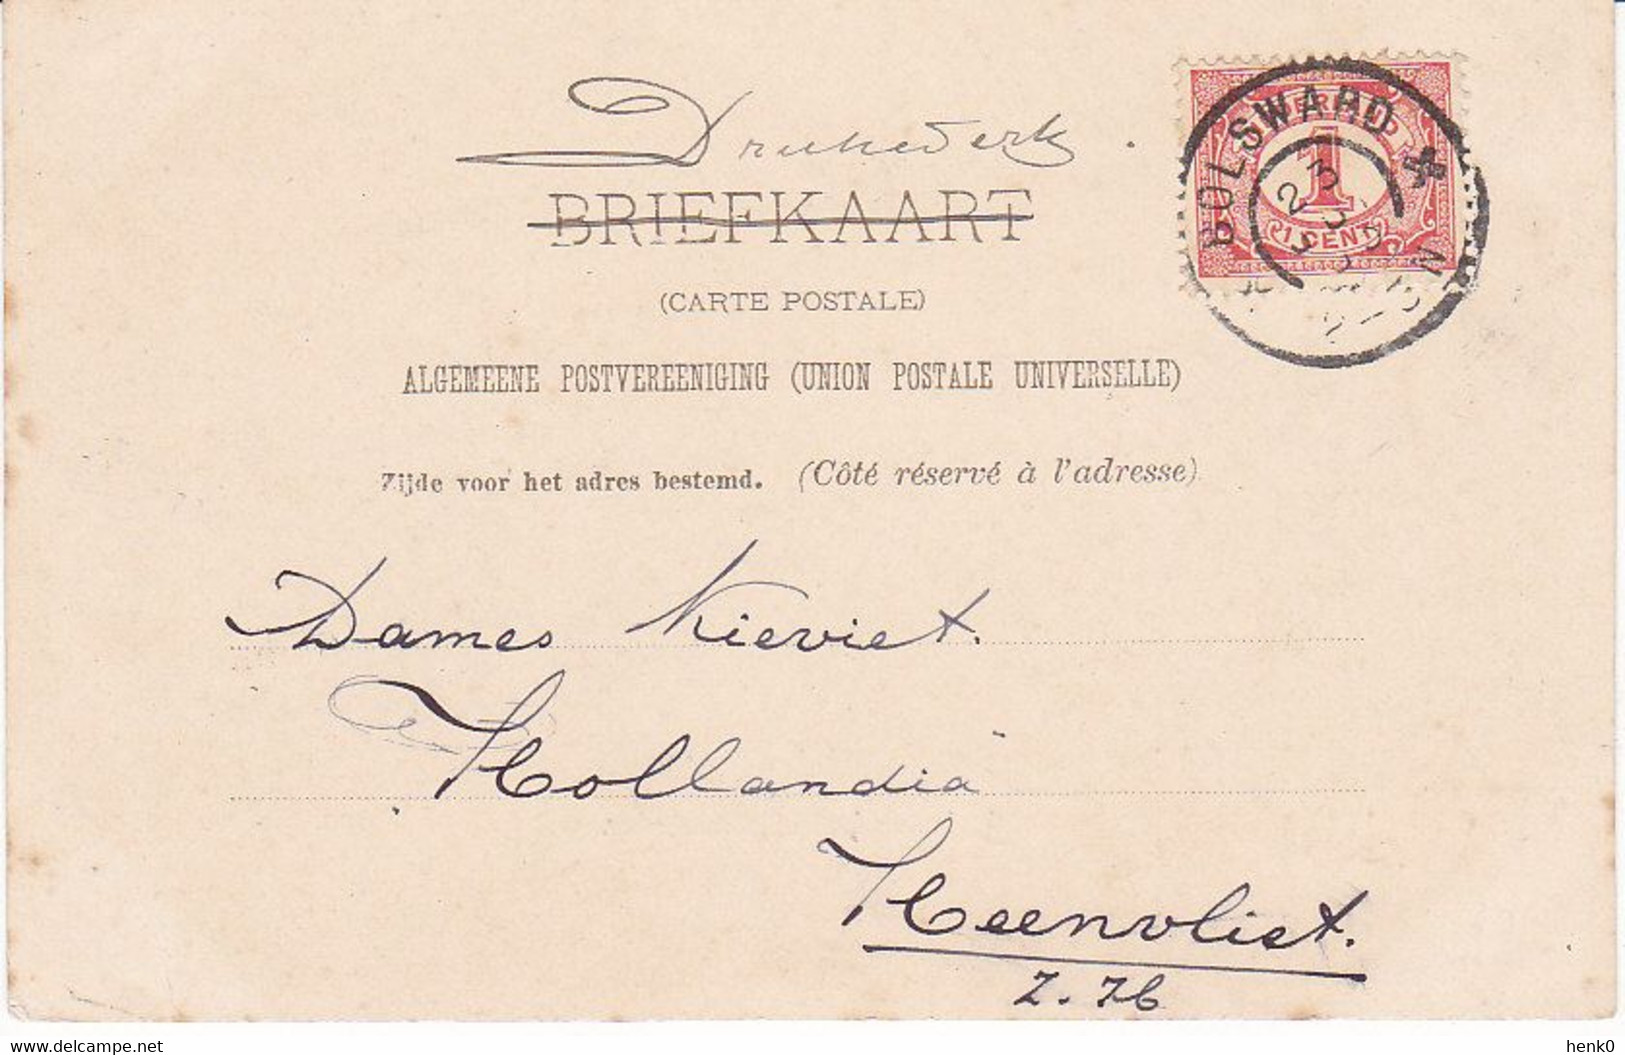 Drukwerk.
BRIEFKAART
(CARTE POSTALE)
BOLSWARD
NEDERLAND
1
1 CENT
ALGEMEENE POSTVEREENIGING (UNION POSTALE UNIVERSELLE)
Zijde voor het adres bestemd. (Côté réservé à l'adresse)
Dames Kieviet.
Hollandia
Heenvliet.
Z. H.
www.delcampe.net
henk0